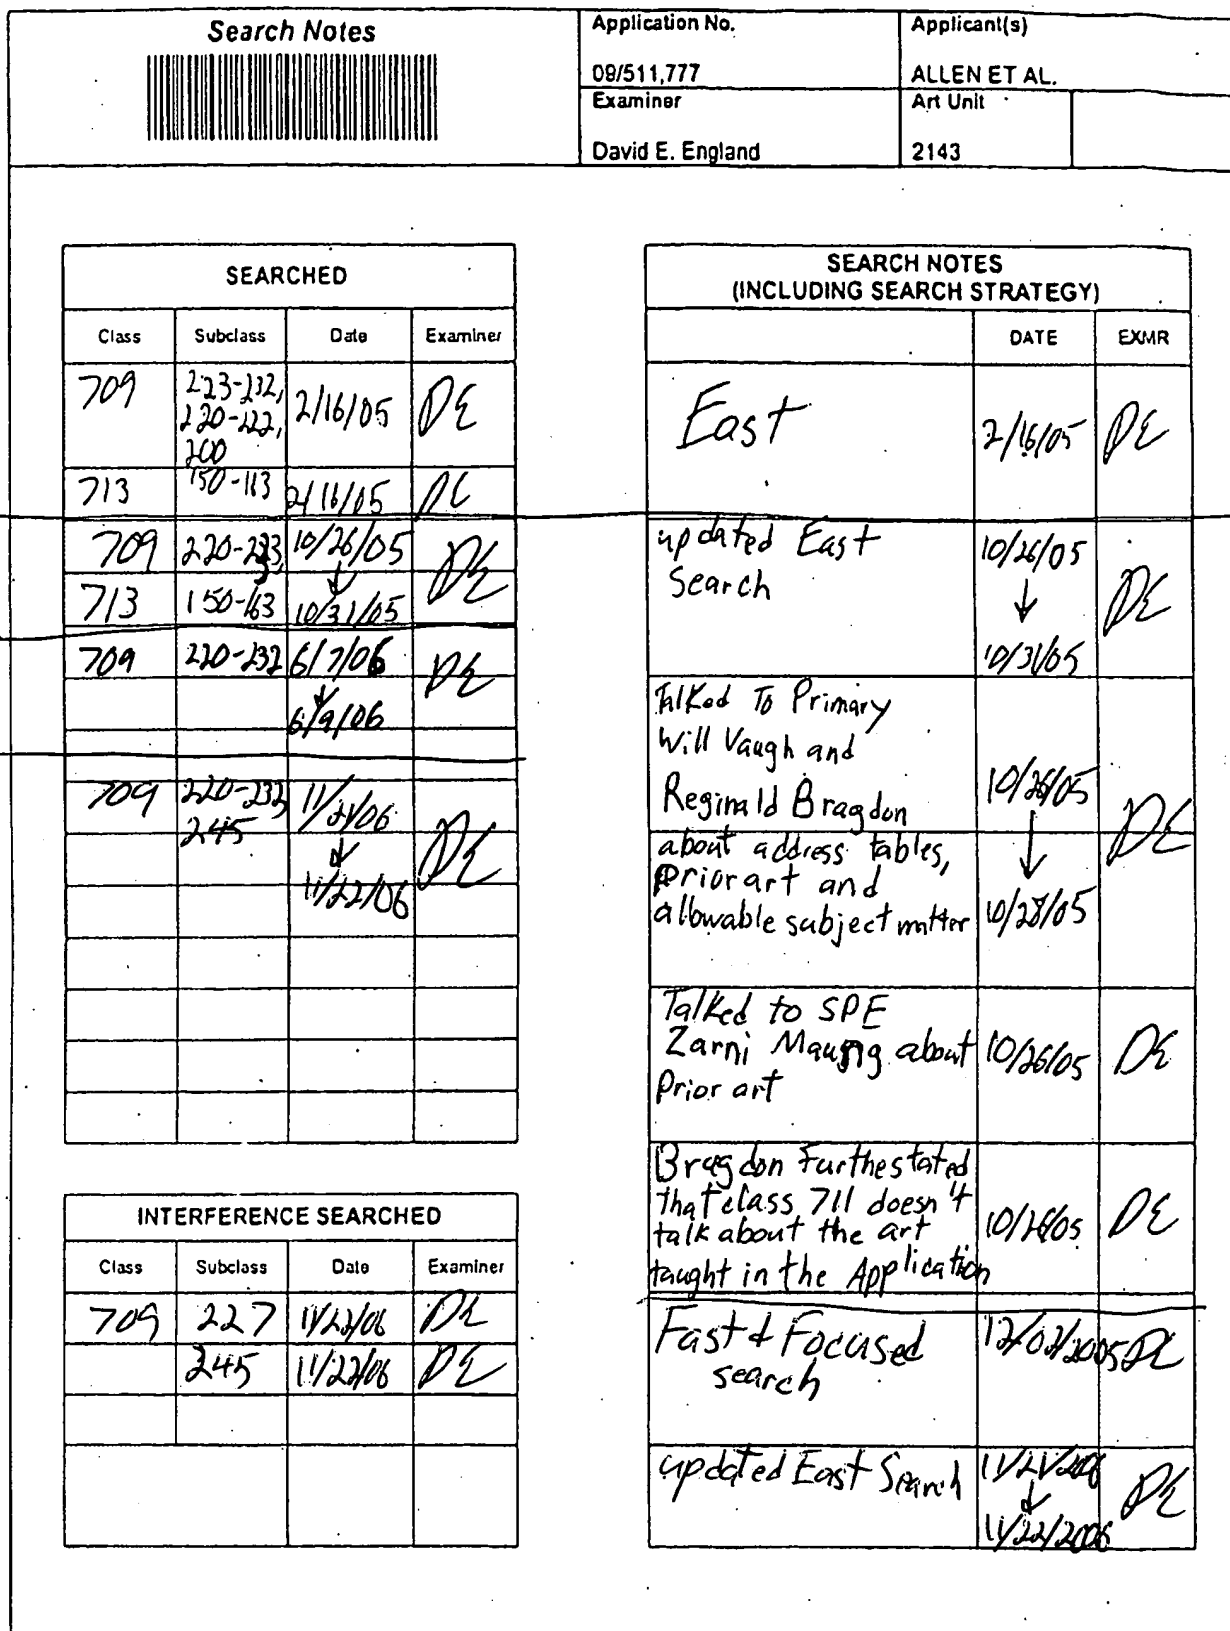 Search Notes
Application No.
09/511,777
Applicant(s)
ALLEN ET AL.
Examiner
David E. England
Art Unit
2143
SEARCHED
Class Subclass Date Examiner
709 223-232, 2/16/05 DE
220-222,
200
713 150-163 2/16/05 DE
709 220-233, 10/26/05 DE
713 150-163 10/31/05
709 220-232 6/7/06 DE
6/9/06
709 220-232 11/21/06 DE
245
11/22/06
INTERFERENCE SEARCHED
Class Subclass Date Examiner
709 227 11/22/06 DE
245 11/22/06 DE
SEARCH NOTES
(INCLUDING SEARCH STRATEGY)
DATE EXMR
East 2/16/05 DE
updated East 10/26/05 DE
Search
10/31/05
Talked To Primary
Will Vaugh and
Reginald Bragdon 10/26/05 DE
about address tables,
Prior art and
allowable subject matter 10/28/05
Talked to SPE
Zarni Maung about 10/26/05 DE
Prior art
Bragdon Furthe stated
that class 711 doesn't
talk about the art 10/26/05 DE
taught in the Application
Fast & Focused 12/02/2005 DE
search
updated East Search 11/21/2006 DE
11/22/2006